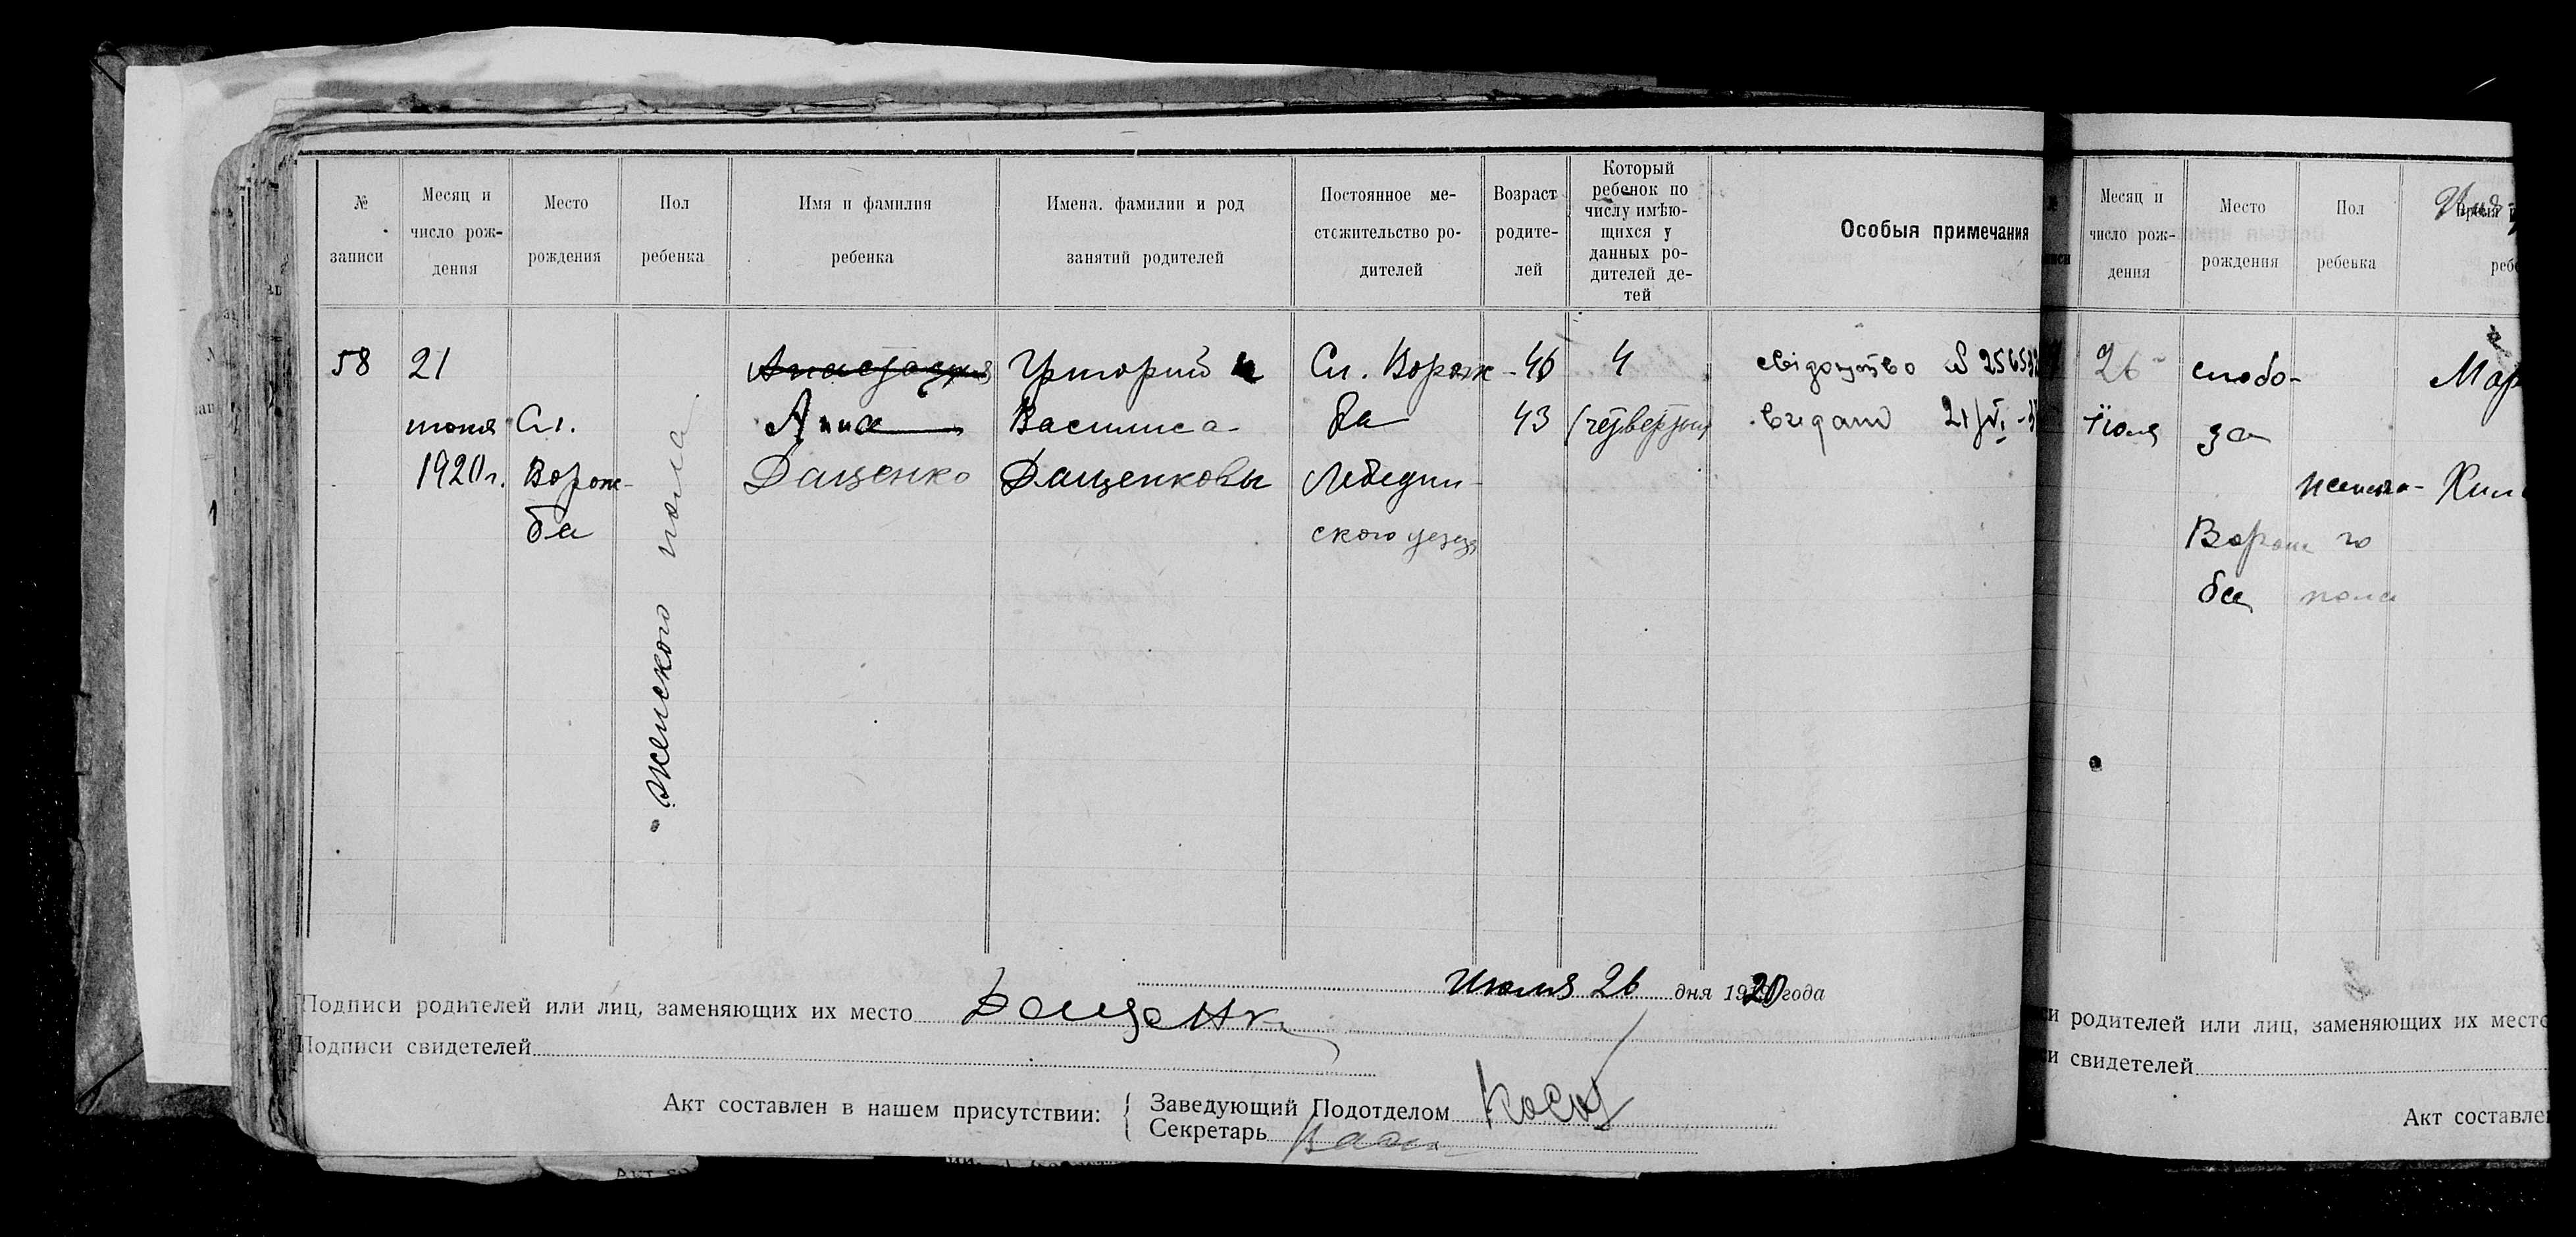 № записи
Месяц и число рождения
Место рождения
Пол ребенка
Имя и фамилия ребенка
Имена. фамилии и род занятий родителей
Постоянное местожительство родителей
Возраст родителей
Который ребенок по числу имѣющихся у данных родителей детей
Особыя примечания
58
21
июня
1920 г.
Сл.
Ворож-
ба
женского пола
Анастасия
Анна
Даценко
Григорий и
Василиса
Даценковы
Сл. Ворож-
ба
Лебедин-
ского уезда
46
43
4
(четвертый)
свідоцтво № 25653
видано 21/VI
Июля 26 дня 1920 года
Подписи родителей или лиц, заменяющих их место Даценк
Подписи свидетелей
Акт составлен в нашем присутствии:
Заведующий Подотделом
Секретарь
Месяц и число рождения
Место рождения
Пол ребенка
26
Июля
слобо-
да
Ворож
ба
женско-
го
пола
Мар
и родителей или лиц, заменяющих их место
и свидетелей
Акт составле